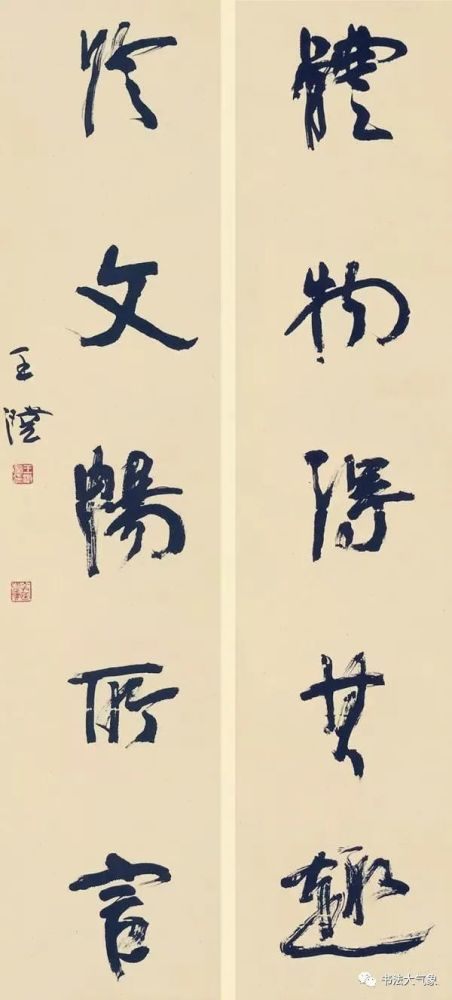 體物得其趣
於文暢所言
王澄
书法大气象